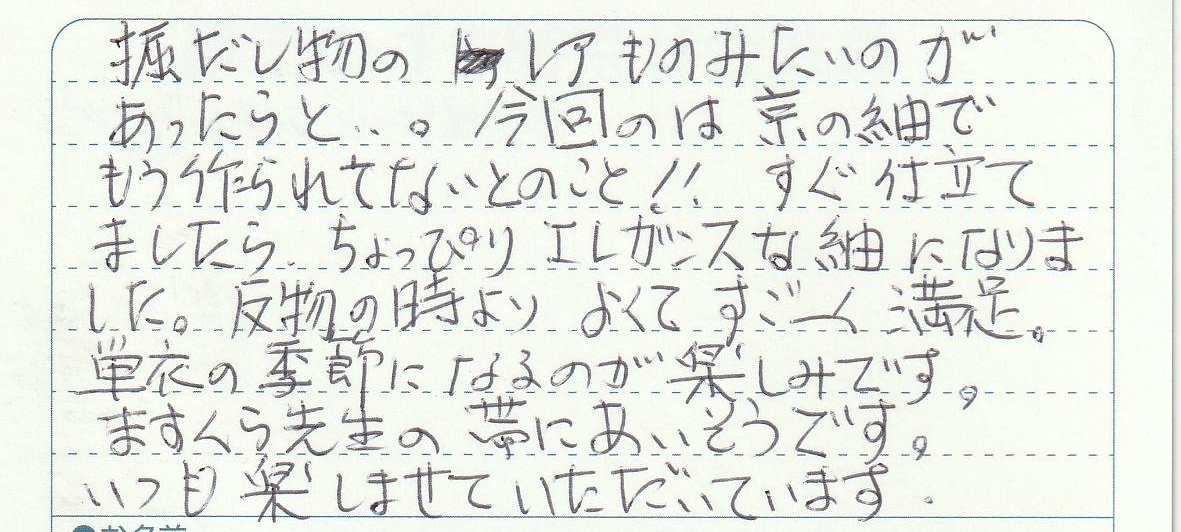 掘だし物の レアものみたいのが
あったらと...。今回のは京の紬で
もう作られてないとのこと!! すぐ仕立て
ましたら、ちょっぴりエレガンスな紬になりま
した。反物の時より よくて すごーく 満足。
単衣の季節になるのが楽しみです。
ますくら先生の帯にあいそうです。
いつも楽しませていただいています.
お名前